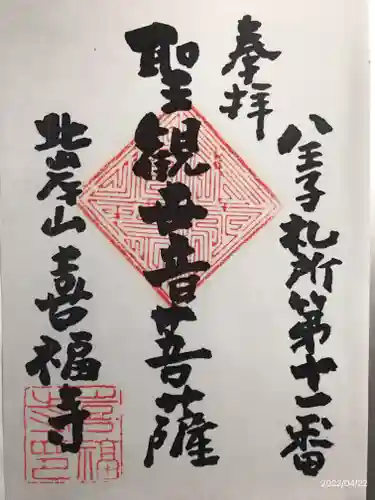 八王子札所第十一番
奉拝
聖観世音菩薩
此岸山喜福寺
喜福
寺印
2022/04/22